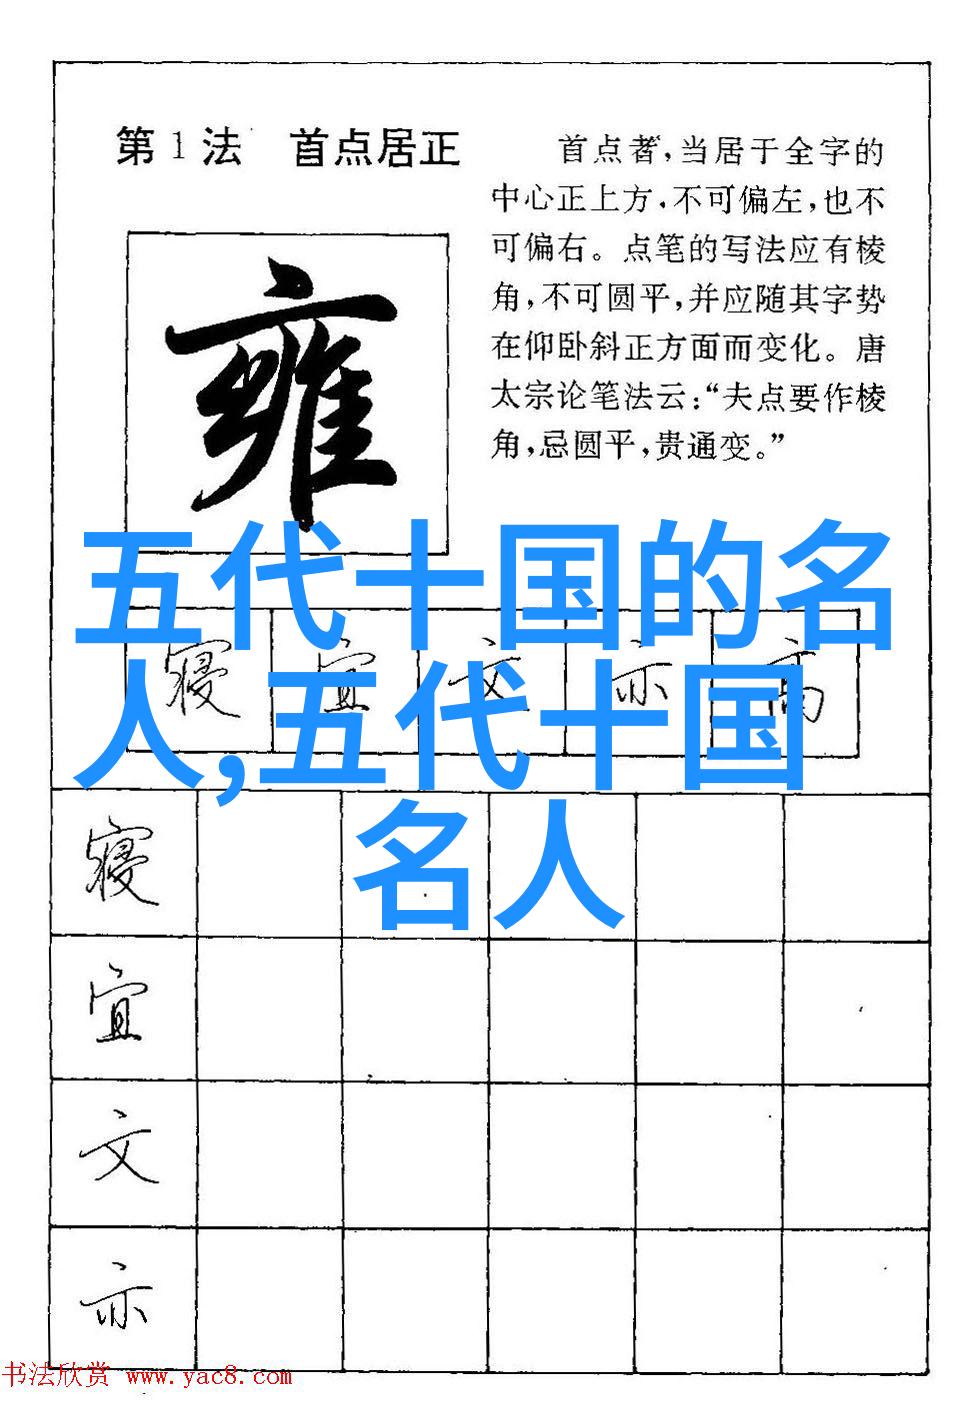 第1法 首点居正
首点者,当居于全字的
中心正上方,不可偏左,也不
可偏右。点笔的写法应有棱
角,不可圆平,并应随其字势
在仰卧斜正方面而变化。唐
太宗论笔法云:“夫点要作棱
角,忌圆平,贵通变。”
雍
五代十国的名
人,五代十国
名人
寝 宜 文 亦 高
寝
宜
文
亦
书法欣赏 www.yac8.com